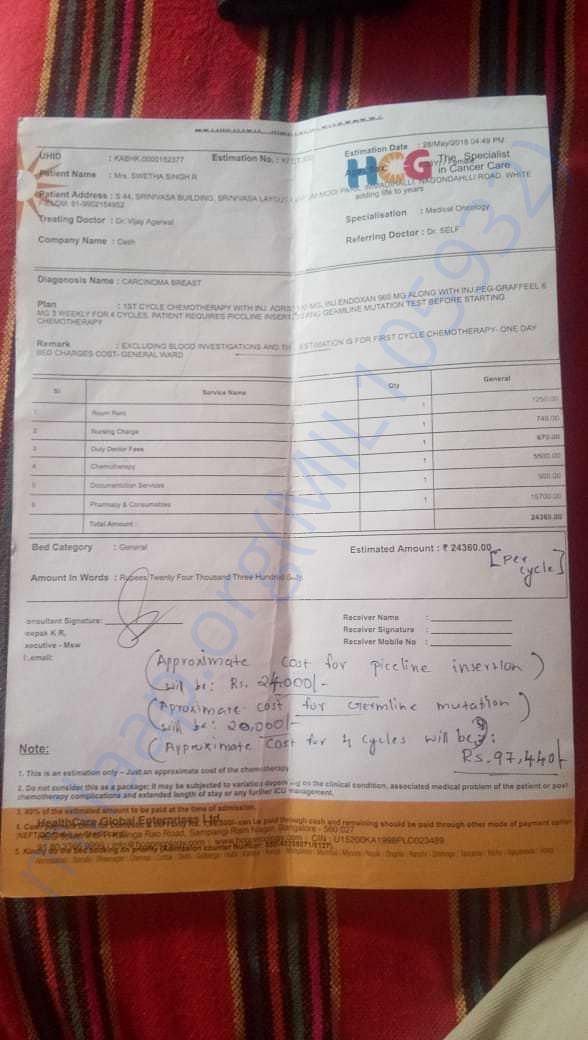 UHID : KABHK.0000152377 Estimation No. : Estimation Date : 28/May/2018 04:49 PM
HCG The Specialist in Cancer Care
adding life to years
Patient Name : Mrs. SWETHA SINGH R
Patient Address : S 44, SRINIVASA BUILDING, SRINIVASA LAYOUT, NAGONDAHLLI ROAD, WHITE
Treating Doctor : Dr. Vijay Agarwal Specialisation : Medical Oncology
Company Name : Cash Referring Doctor : Dr. SELF
Diagonosis Name : CARCINOMA BREAST
Plan : 1ST CYCLE CHEMOTHERAPY WITH INJ. MG, INJ.ENDOXAN 960 MG ALONG WITH INJ.PEG-GRAFFEEL 6
MG 3 WEEKLY FOR 4 CYCLES. PATIENT REQUIRES PICCLINE GERMLINE MUTATION TEST BEFORE STARTING
CHEMOTHERAPY
Remark : EXCLUDING BLOOD INVESTIGATIONS AND ESTIMATION IS FOR FIRST CYCLE CHEMOTHERAPY- ONE DAY
BED CHARGES COST- GENERAL WARD
Sl Service Name Qty General
1 Room Rent 1 1250.00
2 Nursing Charge 1 740.00
3 Duty Doctor Fees 1 670.00
4 Chemotherapy 1 5500.00
5 Documentation Services 1 500.00
6 Pharmacy & Consumables 1 15700.00
Total Amount : 24360.00
Bed Category : General Estimated Amount : ₹ 24360.00
[Per cycle]
Amount In Words : Rupees Twenty Four Thousand Three Hundred Sixty
onsultant Signature: Receiver Name :
eepak K R, Receiver Signature :
xecutive - Msw Receiver Mobile No :
email:
(Approximate cost for piccline insertion)
will be: Rs. 24,000/-
(Aproximate cost for Germline mutation)
will be: 20,000/-
(Approximate cost for 4 cycles will be :
Rs. 97,440/-
Note:
1. This is an estimation only - Just an approximate cost of the chemotherapy
2. Do not consider this as a package; it may be subjected to variation on the clinical condition, associated medical problem of the patient or post
chemotherapy complications and extended length of stay or any further ICU management.
3. 80% of the estimated amount to be paid at the time of admission.
HealthCare Global Enterprises Ltd.
paid through cash and remaining should be paid through other mode of payment
Ranga Rao Road, Sampangi Ram Nagar, Bangalore - 560 027
CIN : U15200KA1998PLC023489
milaap.org(MIL105932)